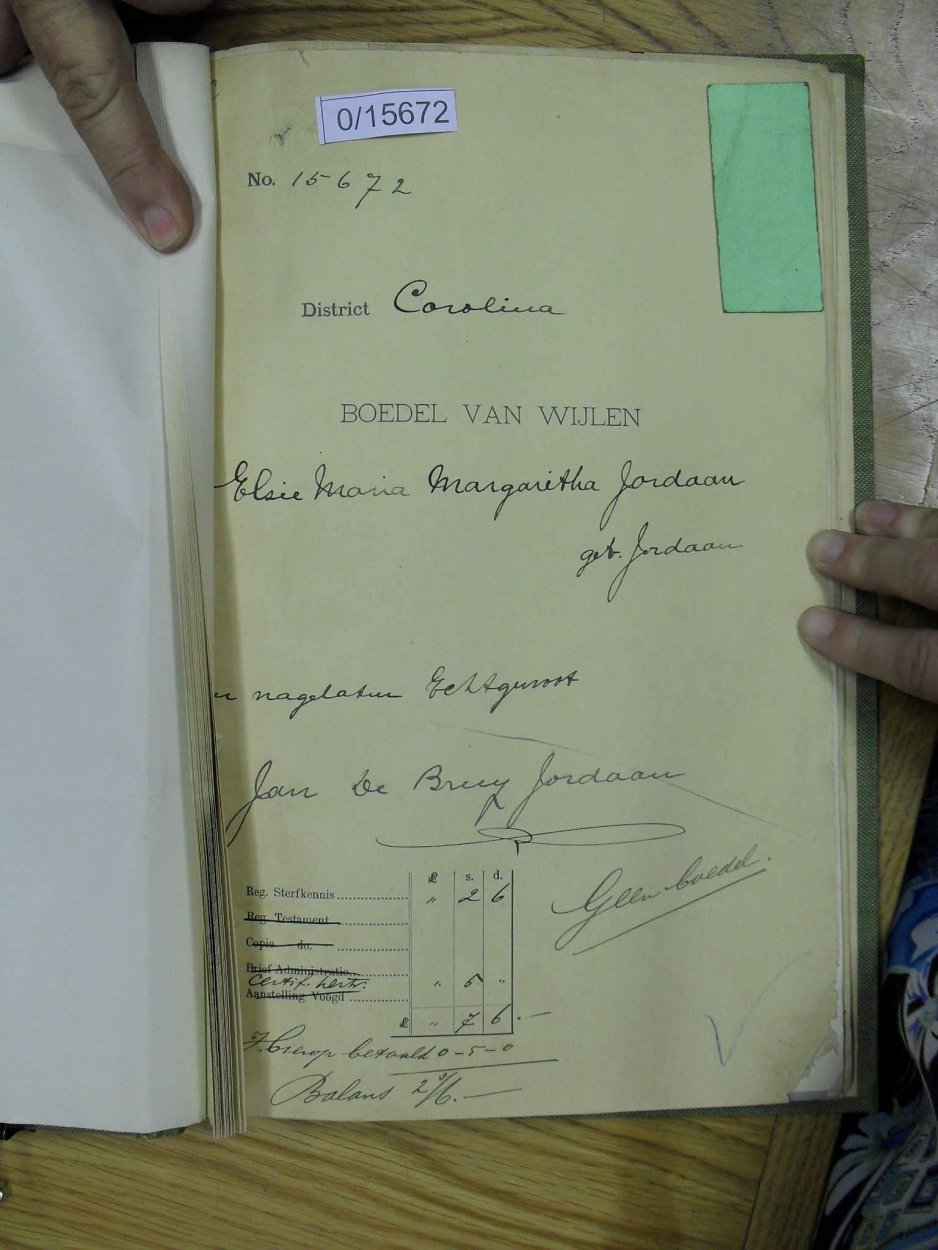 0/15672
No. 15672
District Carolina
BOEDEL VAN WIJLEN
Elsie Maria Margaritha Jordaan
geb. Jordaan
en nagelaten Echtgenoot
Jan De Bruy Jordaan
£ s. d.
Reg. Sterfkennis " 2 6
Reg. Testament
Copie do.
Brief Administratie
Certif.
Aanstelling Voogd " 5 "
£ " 7 6.—
Geen boedel.
betaald 0-5-0
Balans 2/6.—